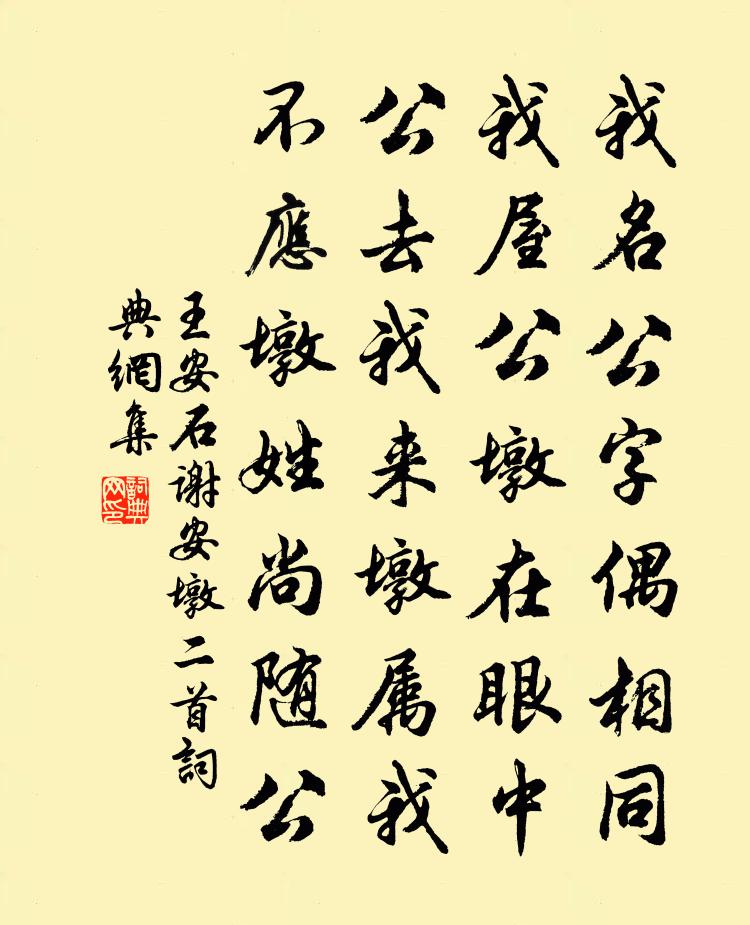 我名公字偶相同
我屋公墩在眼中
公去我来墩属我
不應墩姓尚随公
王安石谢安墩二首詞
典網集
詞典网印